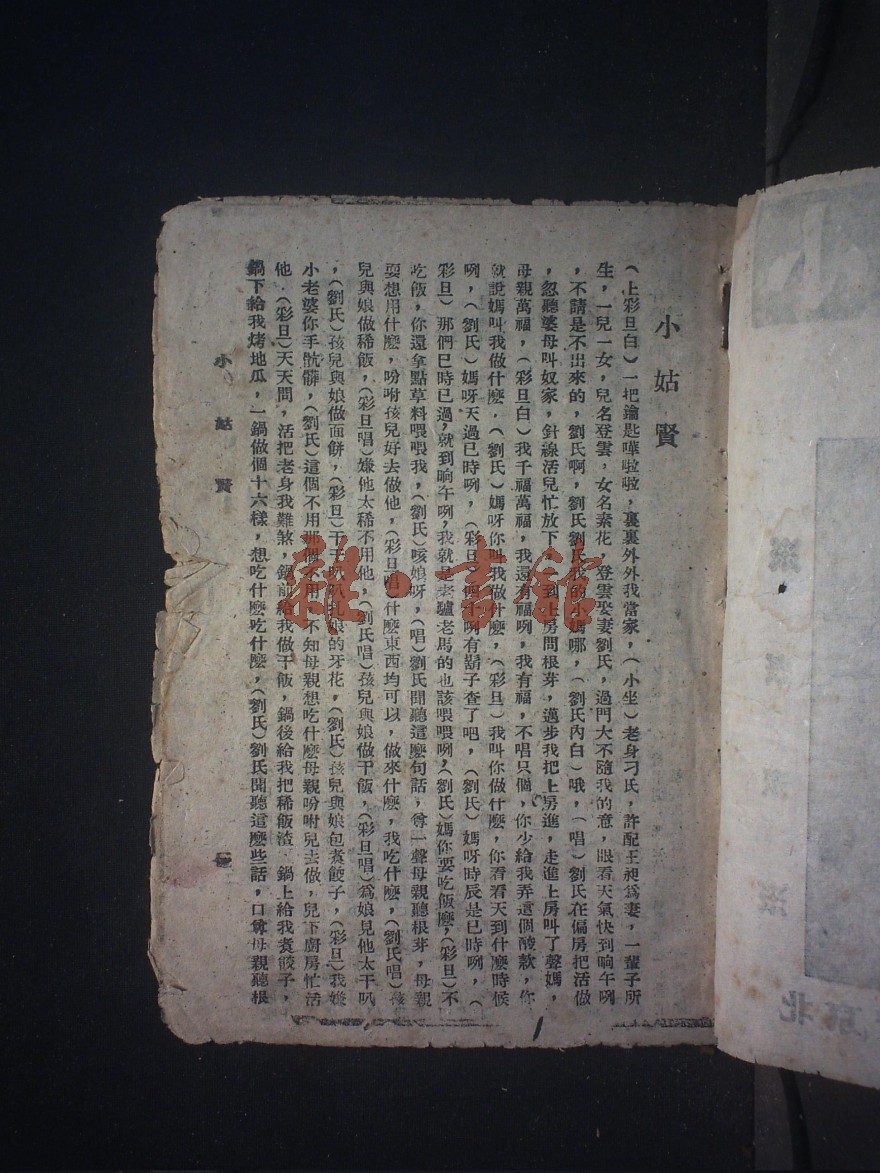 小姑賢
（上彩旦白）一把鑰匙嘩啦啦，裏裏外外我當家，（小坐）老身刁氏，許配王昶爲妻，一輩子所
生，一兒一女，兒名登雲，女名素花，登雲娶妻劉氏，過門大不隨我的意，眼看天氣快到晌午咧
，不請是不出來的，劉氏啊，劉氏劉氏我的小媽哪，（劉氏內白）哦，（唱）劉氏在偏房把活做
，忽聽婆母叫奴家，針線活兒忙放下，到上房問根芽，邁步我把上房進，走進上房叫了聲媽，
母親萬福，（彩旦白）我千福萬福，我還有福咧，我有福，不唱只個，你少給我弄這個酸款，你
就說媽叫我做什麼，（劉氏）媽呀你叫我做什麼，（彩旦）我叫你做什麼，你看看天到什麼時候
咧，（劉氏）媽呀天過巳時咧，（彩旦）四十咧有鬍子查了吧，（劉氏）媽呀時辰是巳時咧，（
彩旦）那們巳時已過，就到晌午咧，我就是老驢老馬的也該喂喂咧，（劉氏）媽你要吃飯麼，（彩旦）不
吃飯，你還拿點草料喂喂我，（劉氏）咳娘呀，（唱）劉氏聞聽這麼句話，尊一聲母親聽根芽，母親
耍想用什麼，吩咐孩兒好去做他，（彩旦唱）什麼東西均可以，做來什麼，我吃什麼，（劉氏唱）孩
兒與娘做稀飯，（彩旦唱）嫌他太稀不用他，（劉氏唱）孩兒與娘做干飯，（彩旦唱）爲娘見他太干叭
，（劉氏）孩兒與娘做面餅，（彩旦）干干叭叭扎娘的牙花，（劉氏）孩兒與娘包煮餃子，（彩旦）我嫌
小老婆你手骯髒，（劉氏）這個不用那個不用，不知母親想吃什麼母親吩咐兒去做，兒下廚房忙活
他．（彩旦）天天問，活把老身我難煞，鍋前給我做干飯，鍋後給我把稀飯渣　鍋上給我煮餃子，
鍋下給我烤地瓜，一鍋做個十六樣，想吃什麼吃什麼，（劉氏）劉氏聞聽這麼些話，口尊母親聽根
小姑賢
雜·書館
北